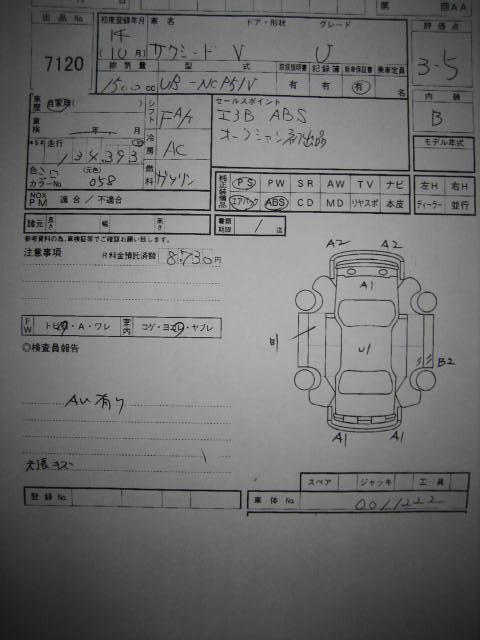 第 回AA
出品No. 初度登録年月 車名 ドア・形状 グレード 評価点
7120 14年(10月) サクシード V U 3.5
排気量 型式 取扱説明書 記録簿 新車保証書 乗車定員
1500cc UB-NCP51V 有 有 有 名
車歴 自家用( ) シフト FA/T セールスポイント 内装
エヌB ABS B
車検 年 月 冷房 AC オークション初出品
走行 134,393 モデル年式
色 (元色) 燃料 ガソリン
カラーNo. 058 純正装備品 PS PW SR AW TV ナビ 左H 右H
NOX PM 適合/不適合 エアバック ABS CD MD リヤスポ 本皮 ディーラー 並行
諸元 長さ 幅 高さ 書類期限 / 迄
参考資料の為、車検証等でご確認お願い致します。
注意事項 R料金預託済額 8,730円
A2 A2
A1
FW トビ・A・ワレ 車内 コゲ・ヨゴレ・ヤブレ
◎検査員報告
B1 U1 B2
AU有り
A1 A1
天張キズ
スペア ジャッキ 工具
登録No. 車体No. 0011222